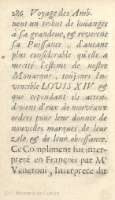 286 Voyage des Amb.
nent un tribut de loüanges
à sa grandeur, et reverent
sa Puissance, d'autant
plus considerable qu'elle a
merité l'estime de nostre
Monarque, toûjours In-
vincible LOUIS XIV. et
que cependant ils atten-
doient d'eux de nouveaux
ordres pour leur donner de
nouvelles marques de leur
zele, et de leur obeïssance.
Ce Compliment fut inter-
preté en François par Mr
Veneroni, Interprete du